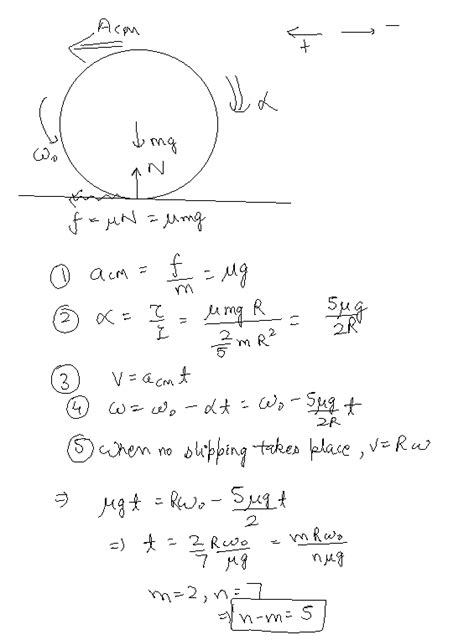 acm
+ −
α
ω₀
mg
N
f = μN = μmg
① acm = f/m = μg
② α = τ/I = μmgR / (2/5 mR²) = 5μg/2R
③ V = acm t
④ ω = ω₀ − αt = ω₀ − 5μg/2R t
⑤ when no slipping takes place, V = Rω
⇒ μgt = Rω₀ − 5μgt/2
⇒ t = 2/7 Rω₀/μg = mRω₀/nμg
m=2, n=7
⇒ n−m = 5